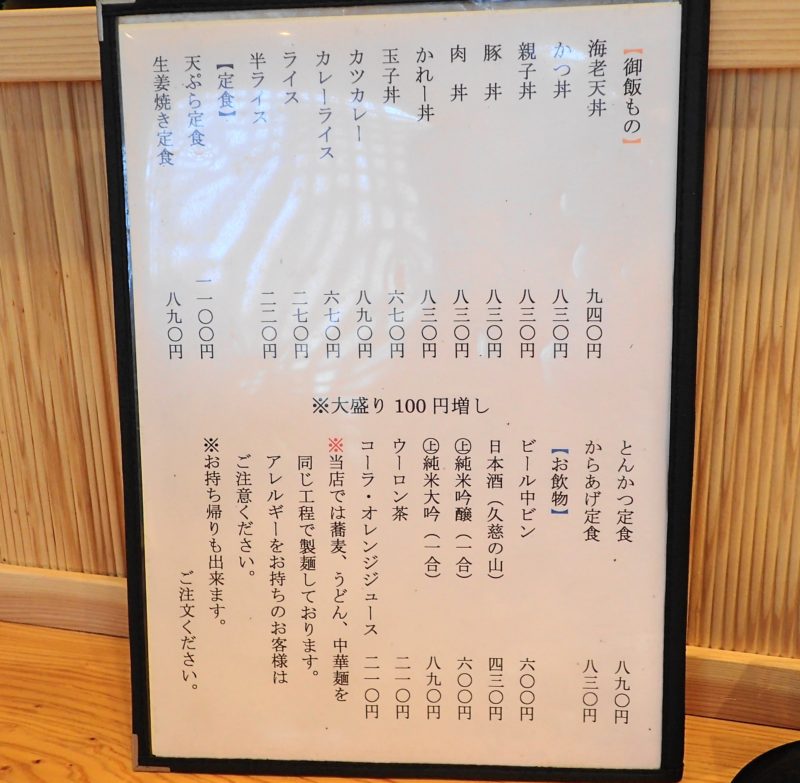 【御飯もの】
海老天丼 九四〇円
かつ丼 八三〇円
親子丼 八三〇円
豚 丼 八三〇円
肉 丼 八三〇円
かれー丼 八三〇円
玉子丼 六七〇円
カツカレー 八九〇円
カレーライス 六七〇円
ライス 二七〇円
半ライス 二二〇円
【定食】
天ぷら定食 一一〇〇円
生姜焼き定食 八九〇円
※大盛り 100 円増し
とんかつ定食 八九〇円
からあげ定食 八三〇円
【お飲物】
ビール中ビン 六〇〇円
日本酒（久慈の山） 四三〇円
㊤純米吟醸（一合） 六〇〇円
㊤純米大吟（一合） 八九〇円
ウーロン茶 二一〇円
コーラ・オレンジジュース 二一〇円
※当店では蕎麦、うどん、中華麺を
同じ工程で製麺しております。
アレルギーをお持ちのお客様は
ご注意ください。
※お持ち帰りも出来ます。
ご注文ください。